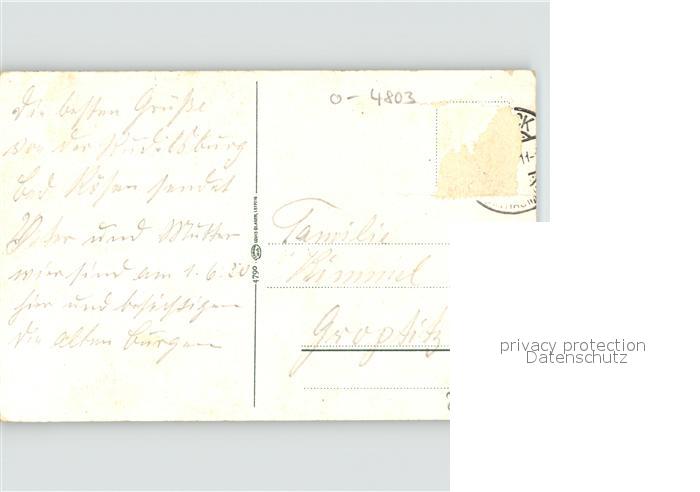 Die besten Grüße
von der Rudelsburg
Bad Kösen sendet
Vater und Mutter
wir sind am 1.6.20
hier und besichtigen
die alten Burgen
0-4803
4790
LOUIS GLASER, LEIPZIG
11-
Familie
Kimmel
Groptitz
privacy protection
Datenschutz